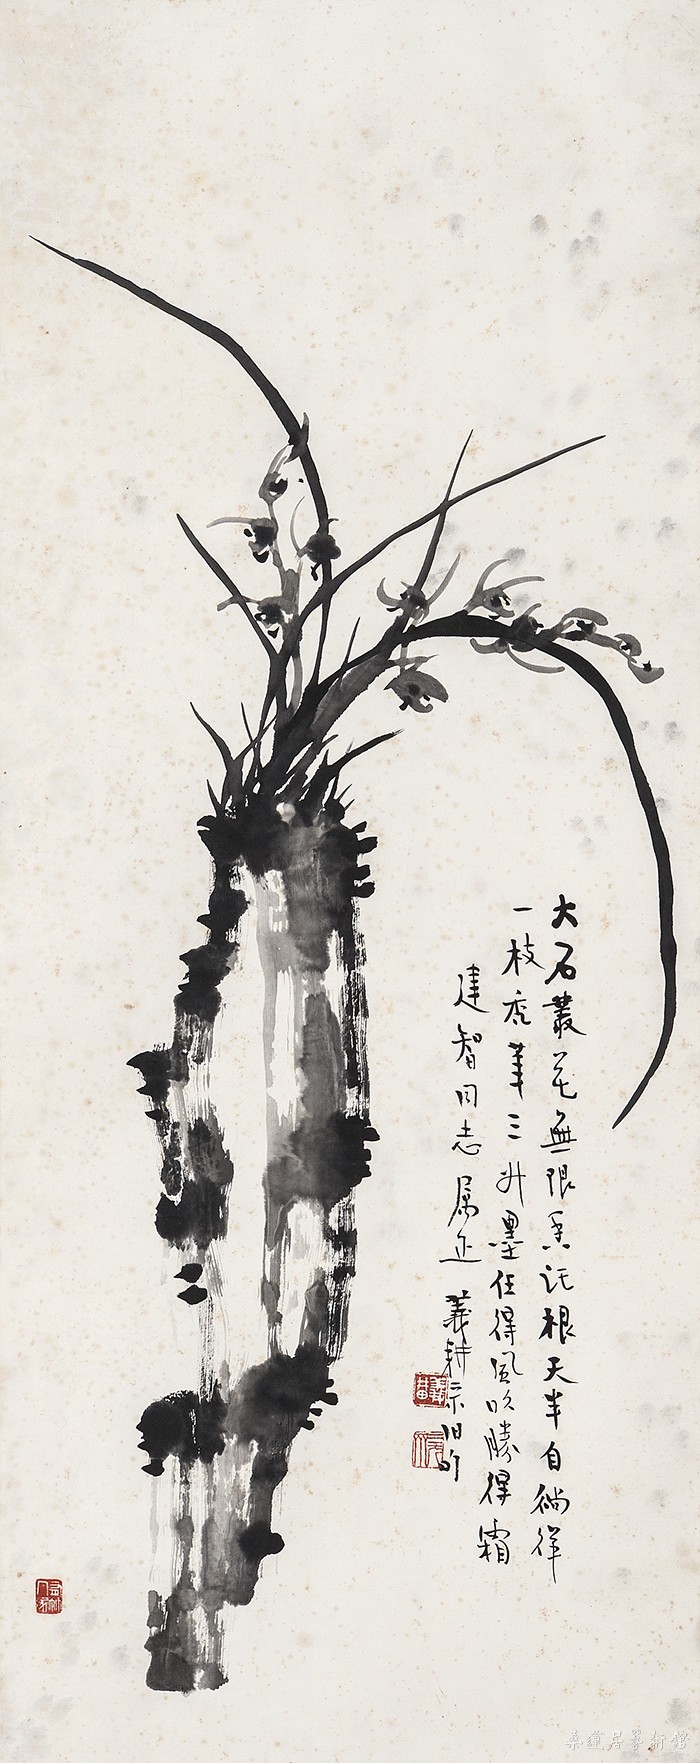 大石叢花無限香託根天半自徜徉
一枝禿筆三升墨任得風吹勝得霜
建智同志屬正
桑蓮居藝術館